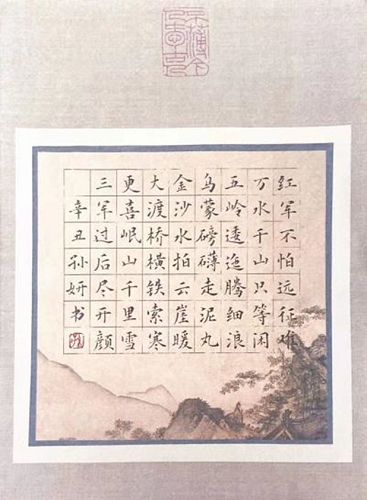 红军不怕远征难
万水千山只等闲
五岭逶迤腾细浪
乌蒙磅礴走泥丸
金沙水拍云崖暖
大渡桥横铁索寒
更喜岷山千里雪
三军过后尽开颜
辛丑孙妍书